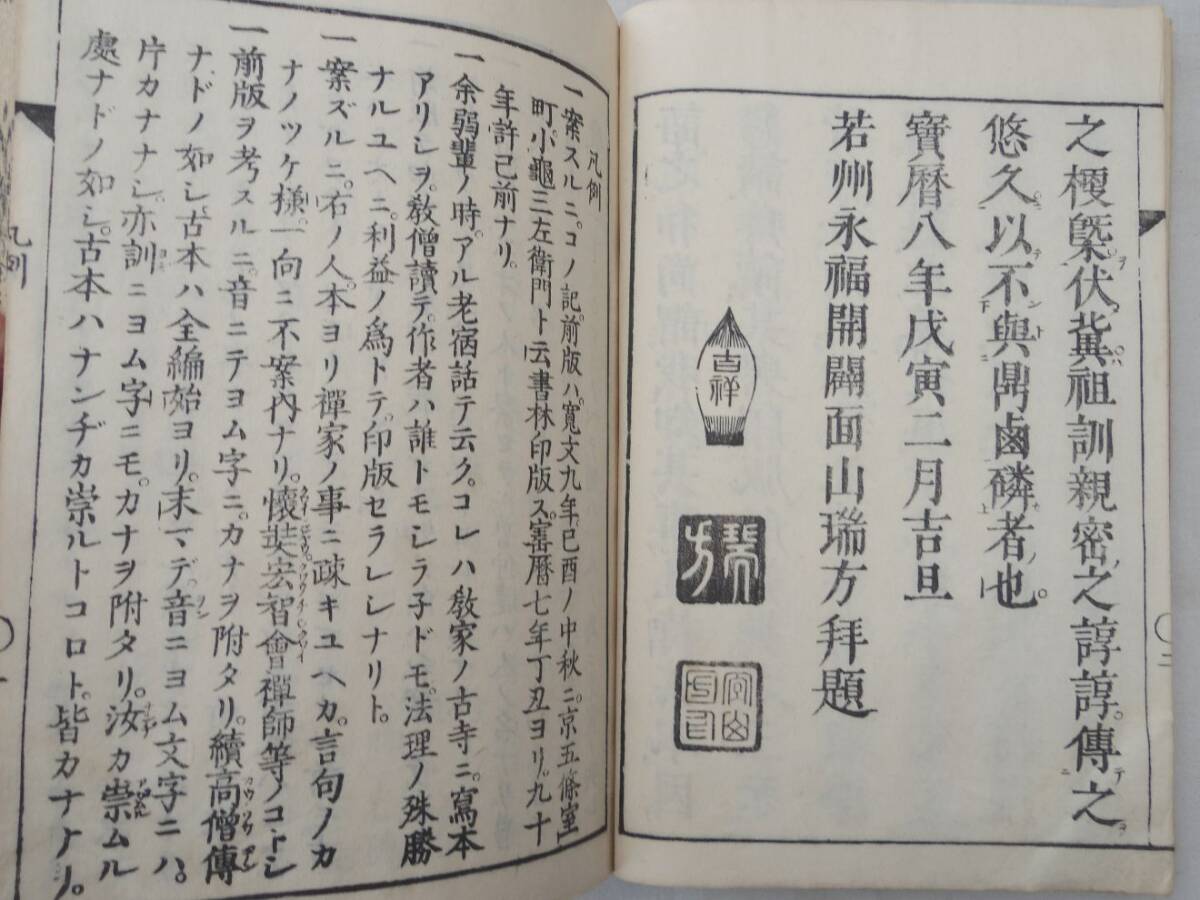 之梗槩伏冀祖訓親密之諄諄傳之
悠久以不與鼎鹵磷者也
寶曆八年戊寅二月吉旦
若州永福開闢面山瑞方拜題
吉祥
凡例
一案スルニコノ記前版ハ寬文九年己酉ノ中秋ニ京五條室
町小龜三左衛門ト云書林ノ印版ス寶曆七年丁丑ヨリ九十
年許已前ナリ
一余弱輩ノ時アル老宿話テ云クコレハ敎家ノ古寺ニ寫本
アリシヲ敎僧讀テ作者ハ誰トモシラ子ドモ法理ノ殊勝
ナルユヘニ利益ノ爲トテ印版セラレシナリト
一案ズルニ右ノ人本ヨリ禪家ノ事ニ疎キユヘカ言句ノカ
ナノツケ樣一向ニ不案內ナリ懷弉宏智會禪師等ノコトシ
一前版ヲ考スルニ音ニテヨム字ニカナヲ附タリ續高僧傳
ナドノ如シ古本ハ全編始ヨリ末マデ音ニヨム文字ニハ
片カナナシ亦訓ニヨム字ニモカナヲ附タリ汝カ崇ムル
處ナドノ如シ古本ハナンヂカ崇ルトコロト皆カナナリ
凡例